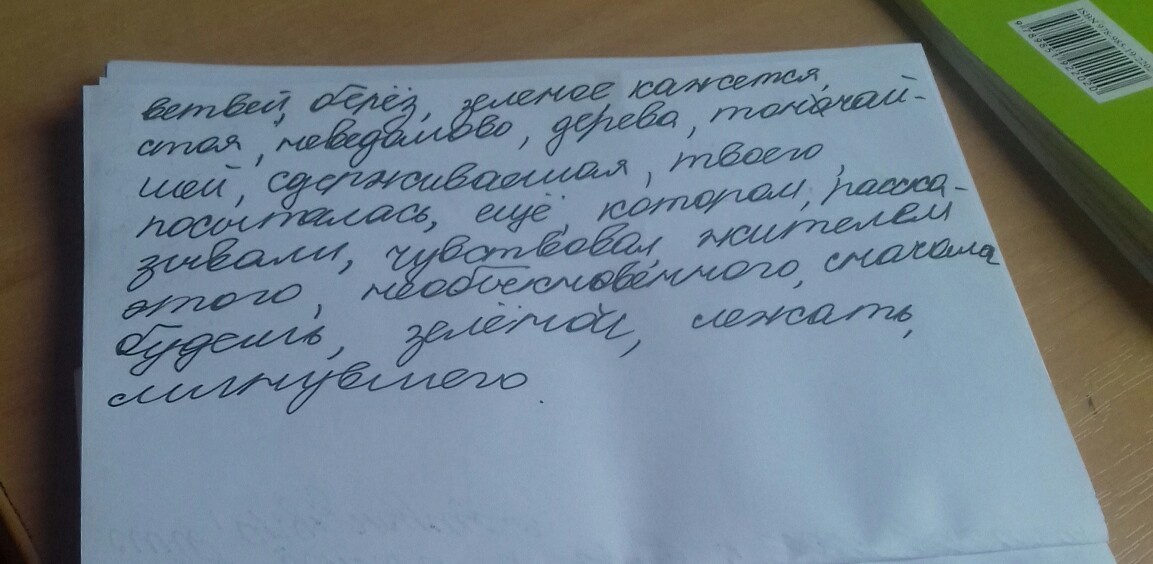 ветвей, берёз, зеленое кажется,
стоя, неведомово, дерева, тончай-
шей, сдерживаемая, твоего,
посыпалась, ещё, котором, расска-
зывали, чувствовал, жителем
этого, необыкновенного, сначала
будешь, зелёной, лежать,
минувшего.